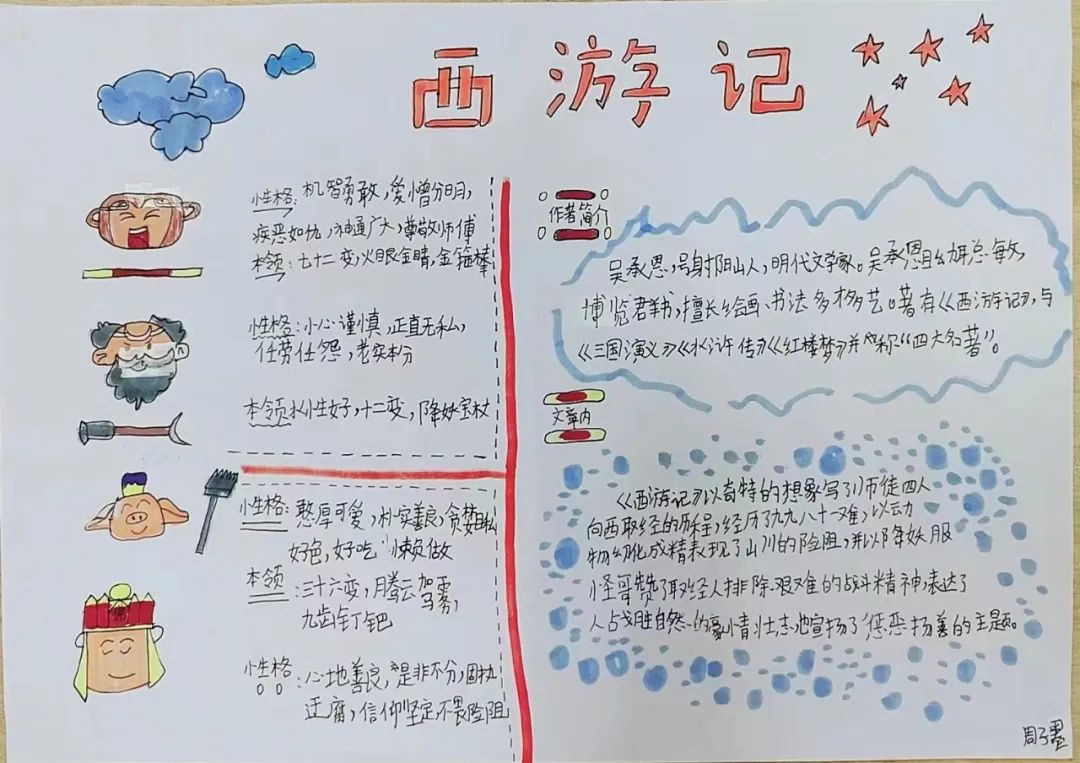 西游记
性格:机智勇敢,爱憎分明,
疾恶如仇,神通广大,尊敬师傅
本领:七十二变,火眼金睛,金箍棒
性格:小心谨慎,正直无私,
任劳任怨,老实本分
本领:水性好,十二变,降妖宝杖
性格:憨厚可爱,朴实善良,贪婪自私
好色,好吃懒做
本领:三十六变,腾云驾雾,
九齿钉钯
性格:心地善良,是非不分,固执
迂腐,信仰坚定,不畏险阻
作者简介
吴承恩,号射阳山人,明代文学家。吴承恩自幼聪敏
博览群书,擅长绘画、书法多才多艺。著有《西游记》,与
《三国演义》《水浒传》《红楼梦》并称“四大名著”。
文章内
《西游记》以奇特的想象写了师徒四人
向西取经的历程,经历了九九八十一难,以动
物幻化成精表现了山川的险阻,并以降妖服
怪哥赞了取经人排除艰难的战斗精神,表达了
人战胜自然的豪情壮志,也宣扬了惩恶扬善的主题。
周子墨